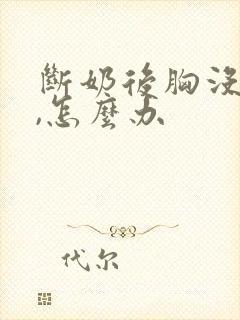 斷奶後胸沒
,怎麼办
代尔